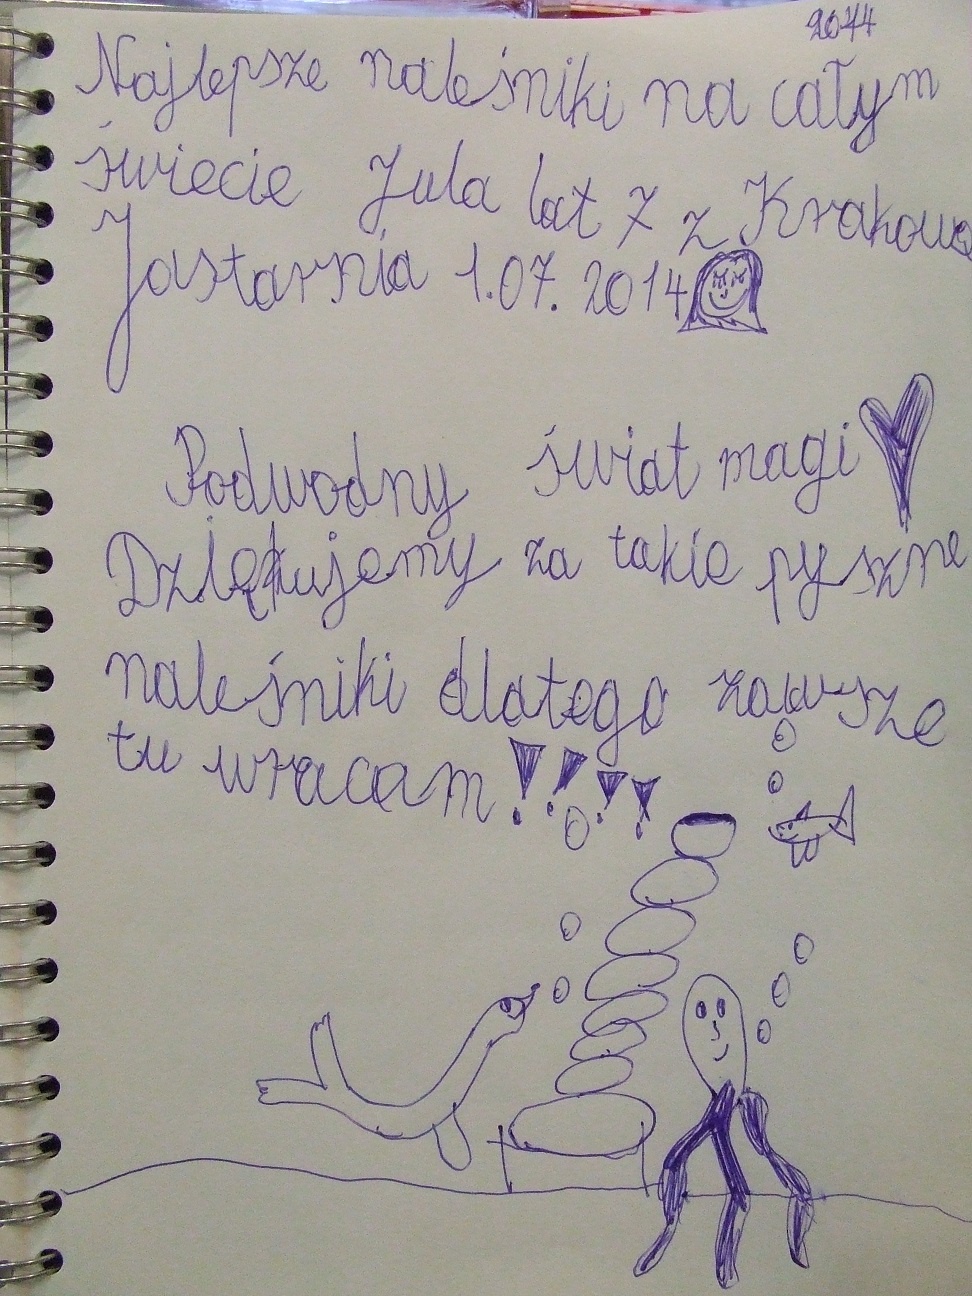 2014
Najlepsze naleśniki na całym
świecie Jula lat 7 z Krakowa
Jastarnia 1.07.2014
Podwodny świat magi
Dziękujemy za takie pyszne
naleśniki dlatego zawsze
tu wracam!!!!